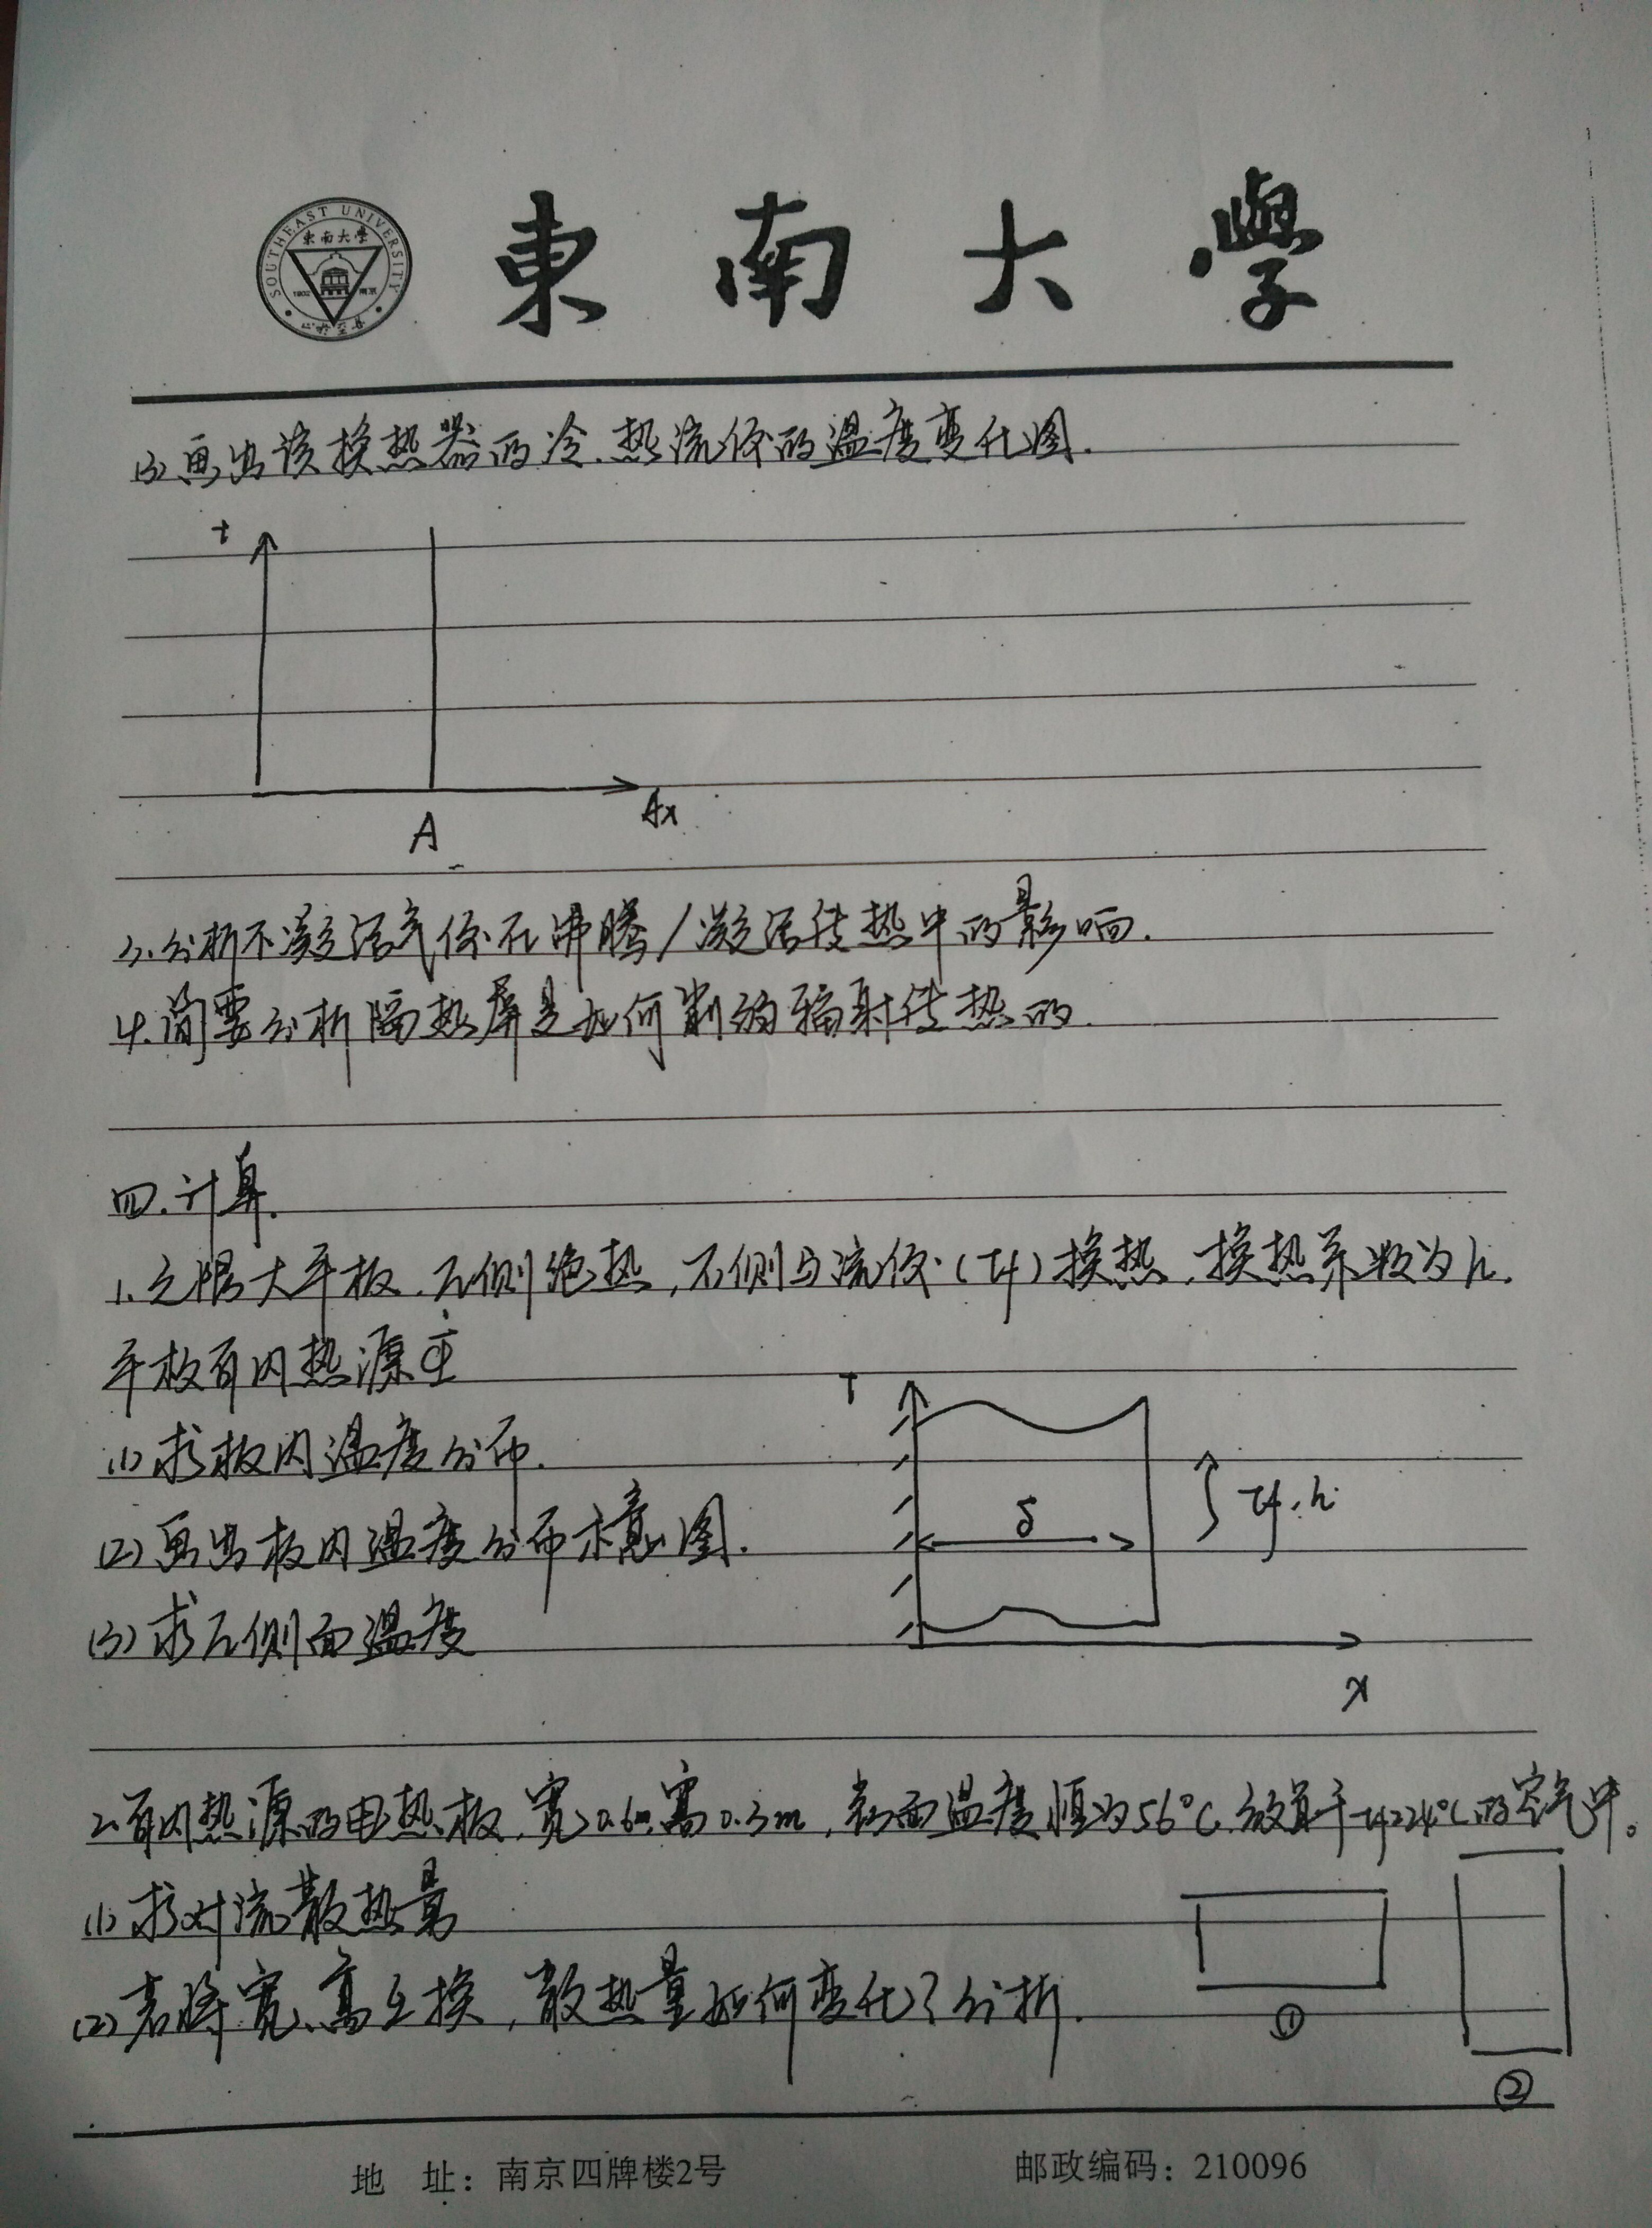 SOUTHEAST UNIVERSITY
東南大學
1902 南京
東南大學
(3)画出该换热器的冷、热流体的温度变化图.
t
Ax
A
3.分析不凝结气体在沸腾/凝结传热中的影响.
4.简要分析隔热屏是如何削弱辐射传热的.
四.计算.
1.无限大平板,左侧绝热,右侧与流体(Tf)换热,换热系数为h.
平板有内热源Φ
(1)求板内温度分布.
T
(2)画出板内温度分布示意图.
δ
Tf.h
(3)求左侧面温度
x
2.有内热源的电热板,宽0.6m高0.3m,表面温度恒为56°C,放置于Tf=24°C的空气中。
(1)求对流散热量
(2)若将宽、高互换,散热量如何变化?分析.
①
②
地 址：南京四牌楼2号 邮政编码：210096